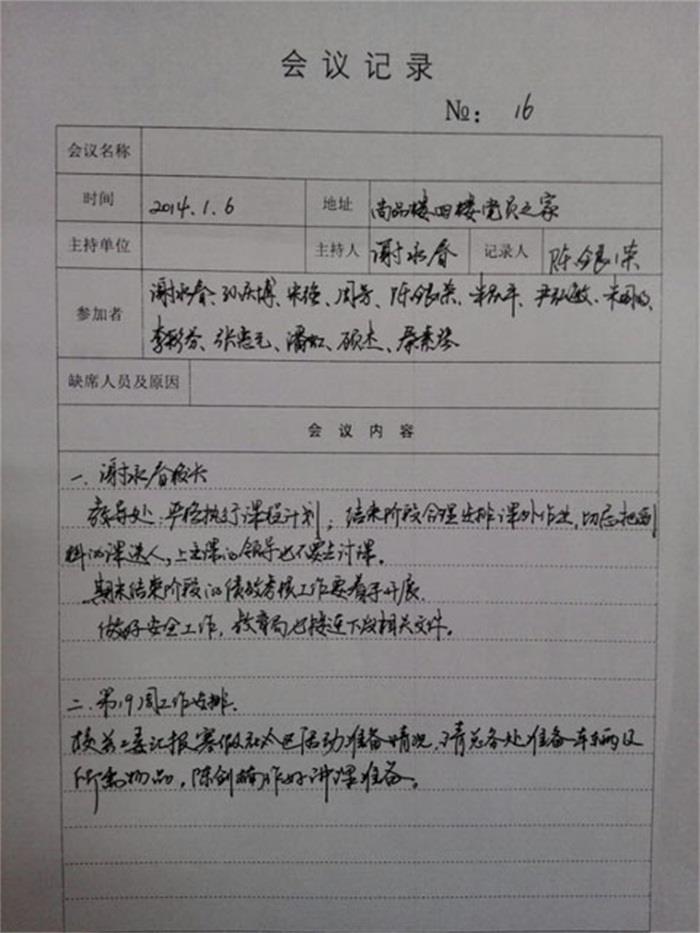 会议记录
№: 16
会议名称
时间 2014.1.6 地址 尚品楼四楼党员之家
主持单位 主持人 谢永春 记录人 陈银荣
参加者 谢永春、孙庆博、宋强、周芳、陈银荣、尹弘敏、
李彩芬、张忠元、潘虹、顾杰、秦素琴
缺席人员及原因
会议内容
一、谢永春校长
教导处:严格执行课程计划,结束阶段合理安排课外作业,切忌把副
科的课送人,上主课的领导也不要去讨课。
期末结束阶段的绩效考核工作要着手开展.
做好安全工作,教育局已接连下发相关文件。
二、第19周工作安排.
工委汇报寒假社区活动准备情况,请总务处准备车辆及
所需物品,陈剑楠作好讲课准备。